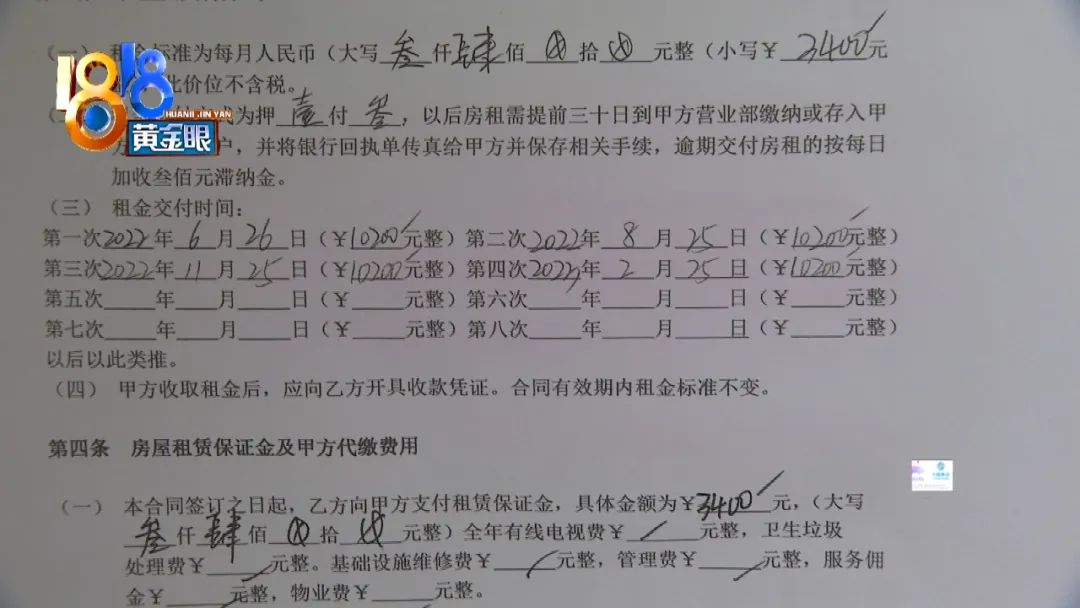 （一） 租金标准为每月人民币（大写 叁 仟 肆 佰 拾 元整（小写￥ 3400 元
此价位不含税。
式为押 壹 付 叁 ，以后房租需提前三十日到甲方营业部缴纳或存入甲
户，并将银行回执单传真给甲方并保存相关手续，逾期交付房租的按每日
加收叁佰元滞纳金。
1818
HUANG JIN YAN
黄金眼
（三） 租金交付时间：
第一次2022年 6 月 26 日（￥10200元整）第二次2022年 8 月 25 日（￥10200元整）
第三次2022年 11 月 25 日（￥10200元整）第四次2023年 2 月 25 日（￥10200元整）
第五次____年____月____日（￥____元整）第六次____年____月____日（￥____元整）
第七次____年____月____日（￥____元整）第八次____年____月____日（￥____元整）
以后以此类推。
（四） 甲方收取租金后，应向乙方开具收款凭证。合同有效期内租金标准不变。
第四条 房屋租赁保证金及甲方代缴费用
（一） 本合同签订之日起，乙方向甲方支付租赁保证金，具体金额为￥3400元，（大写
叁 仟 肆 佰 拾 元整）全年有线电视费￥____元整，卫生垃圾
处理费￥____元整。基础设施维修费￥____元整，管理费￥____元整，服务佣
金￥____元整，物业费￥____元整。